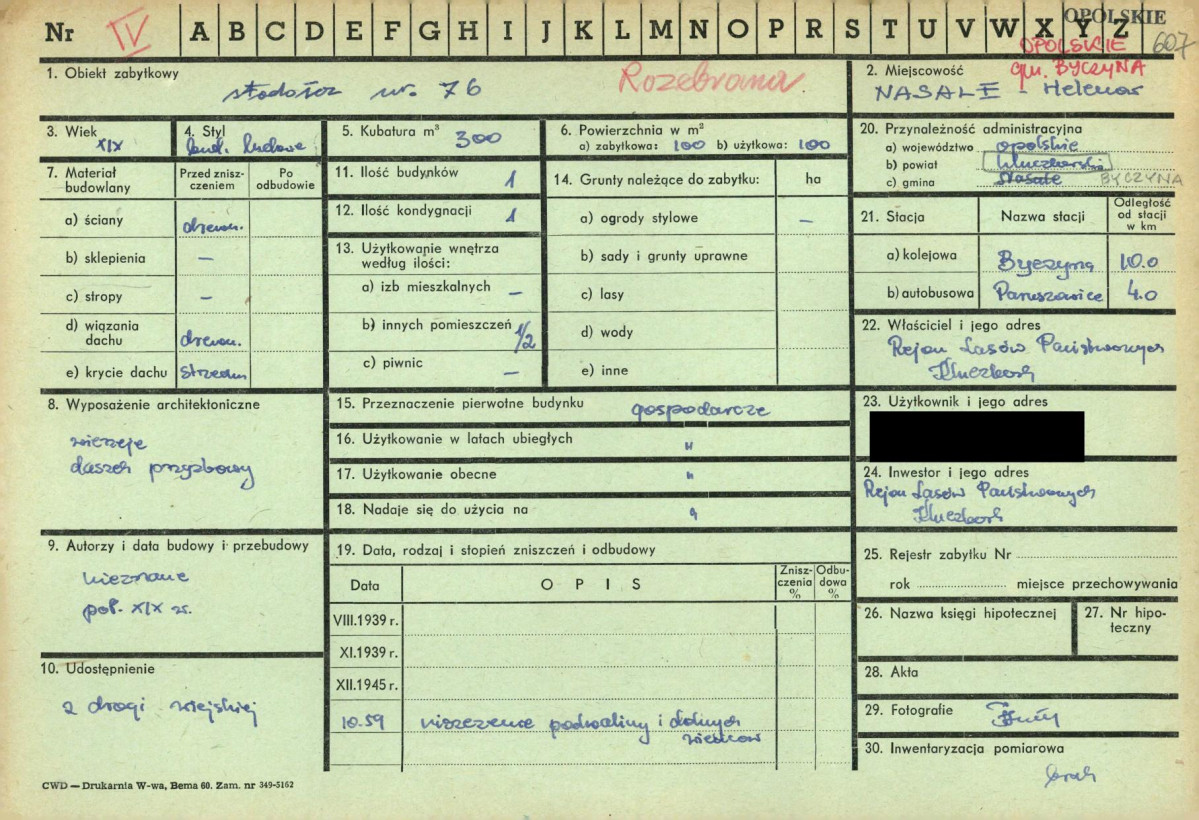 OPOLSKIE
Nr IV A B C D E F G H I J K L M N O P R S T U V W X Y Z
OPOLSKIE 607
gm. BYCZYNA
1. Obiekt zabytkowy
stodoła nr. 76
Rozebrana
2. Miejscowość
NASALE - Helenów
3. Wiek
XIX
4. Styl
bud. ludowe
5. Kubatura m³ 300
6. Powierzchnia w m²
a) zabytkowa: 100 b) użytkowa: 100
20. Przynależność administracyjna
a) województwo opolskie
b) powiat kluczborski
c) gmina Nasale BYCZYNA
7. Materiał budowlany
Przed zniszczeniem
Po odbudowie
a) ściany drewn.
b) sklepienia –
c) stropy –
d) wiązania dachu drewn.
e) krycie dachu strzecha
11. Ilość budynków 1
12. Ilość kondygnacji 1
13. Użytkowanie wnętrza
według ilości:
a) izb mieszkalnych –
b) innych pomieszczeń 1/2
c) piwnic –
14. Grunty należące do zabytku: ha
a) ogrody stylowe –
b) sady i grunty uprawne
c) lasy
d) wody
e) inne
21. Stacja
Nazwa stacji
Odległość od stacji w km
a) kolejowa Byczyna 10.0
b) autobusowa Paruszowice 4.0
22. Właściciel i jego adres
Rejon Lasów Państwowych
Kluczbork
8. Wyposażenie architektoniczne
wierzeje
daszek przyzbowy
15. Przeznaczenie pierwotne budynku gospodarcze
16. Użytkowanie w latach ubiegłych "
17. Użytkowanie obecne "
18. Nadaje się do użycia na "
23. Użytkownik i jego adres
24. Inwestor i jego adres
Rejon Lasów Państwowych
Kluczbork
9. Autorzy i data budowy i przebudowy
nieznane
poł. XIX w.
19. Data, rodzaj i stopień zniszczeń i odbudowy
Data
OPIS
Zniszczenia %
Odbudowa %
VIII.1939 r.
XI.1939 r.
XII.1945 r.
10.59 niszczenie podwaliny i dolnych
wieńców
25. Rejestr zabytku Nr
rok miejsce przechowywania
26. Nazwa księgi hipotecznej
27. Nr hipoteczny
10. Udostępnienie
z drogi wiejskiej
28. Akta
29. Fotografie
30. Inwentaryzacja pomiarowa
brak
CWD — Drukarnia W-wa, Bema 60. Zam. nr 349-5162